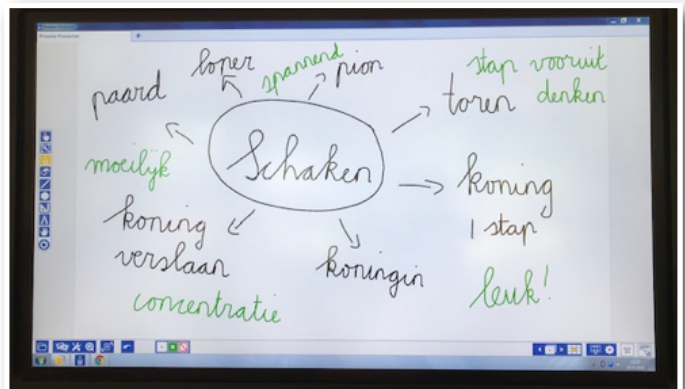 loper
spannend
pion
stap vooruit
denken
paard
toren
moeilijk
Schaken
koning
1 stap
koning
verslaan
koningin
leuk!
concentratie